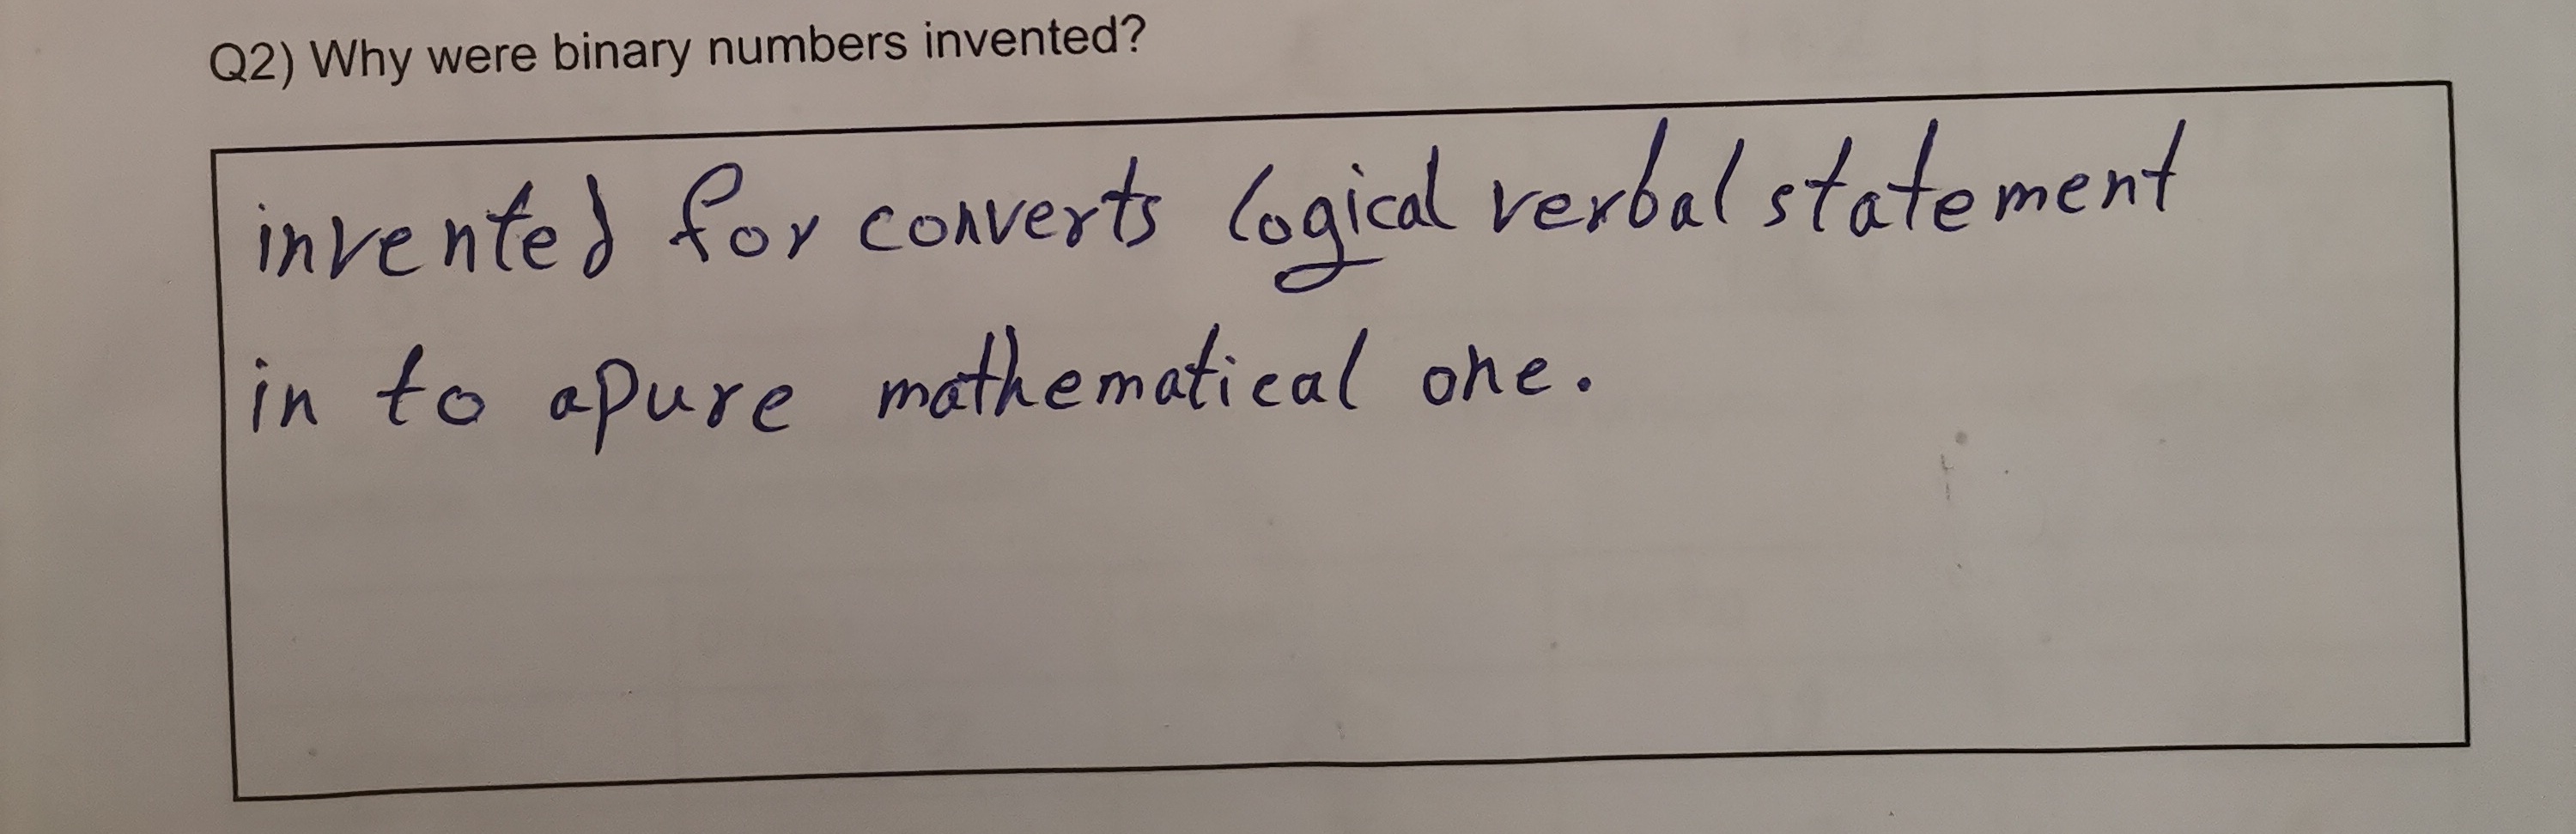 Q2) Why were binary numbers invented?
invented for converts logical verbal statement
in to apure mathematical one.